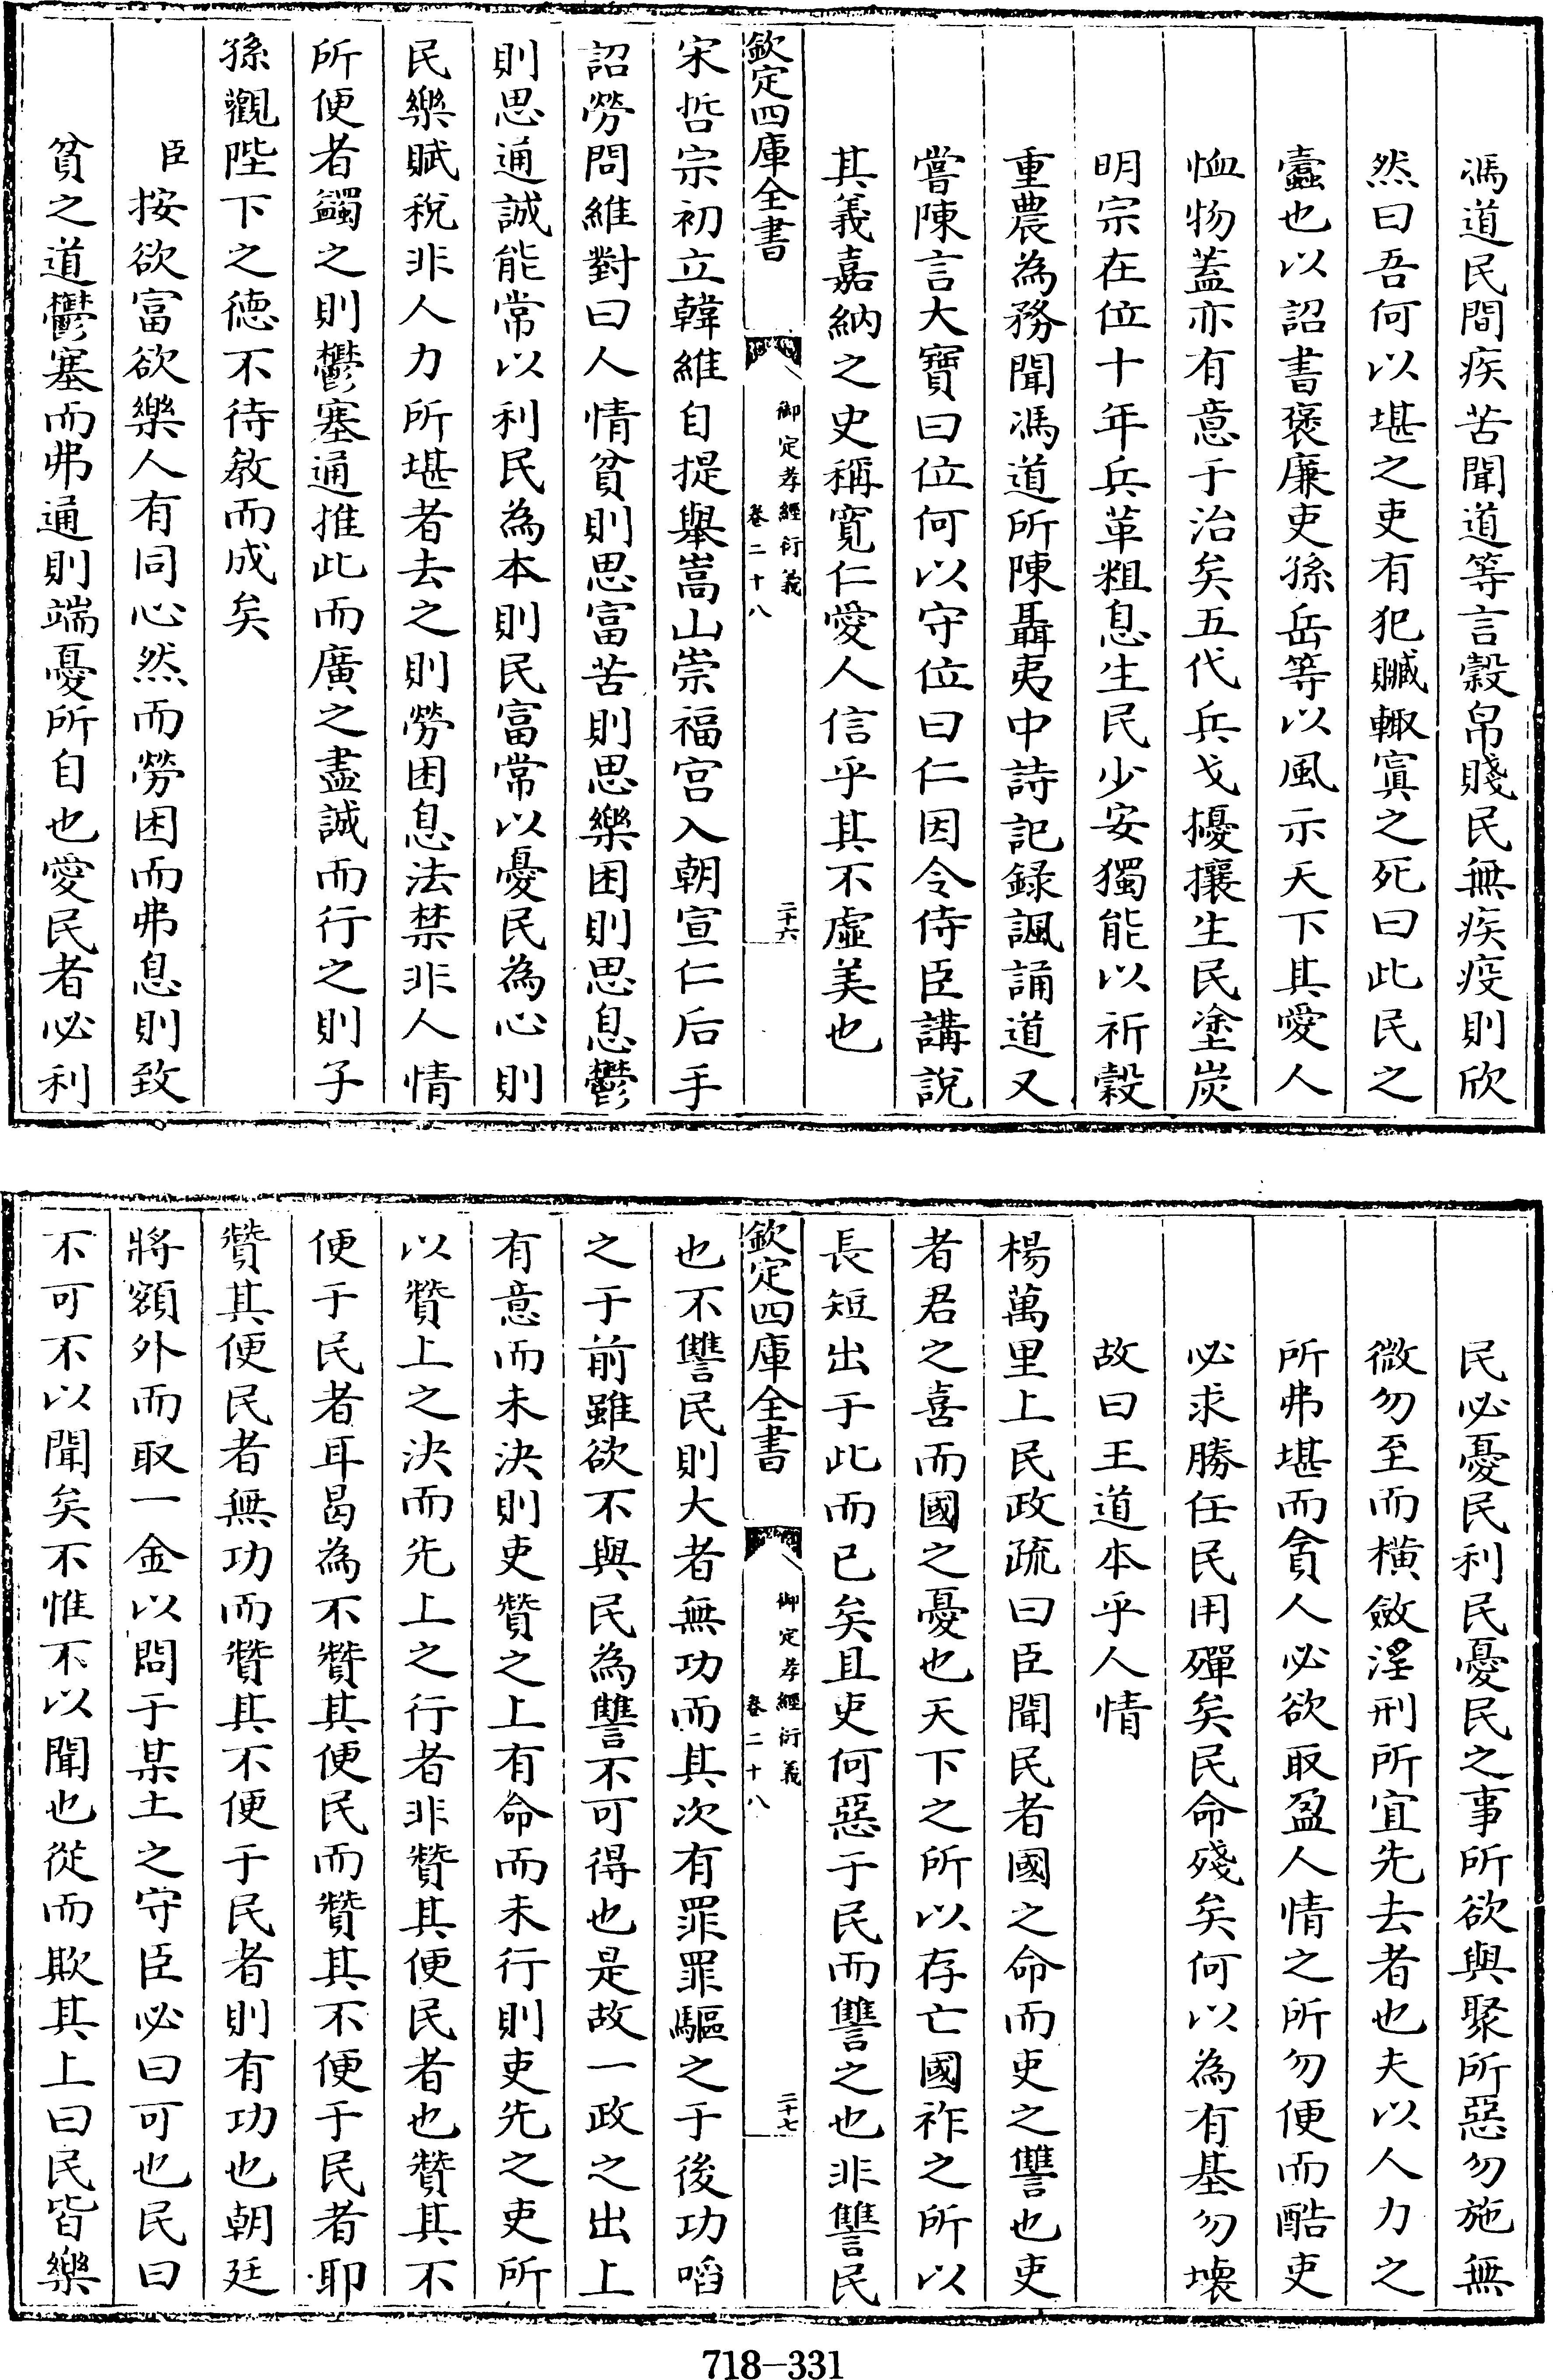 馮道民間疾苦聞道等言穀帛賤民無疾疫則欣
然曰吾何以堪之吏有犯贓輙寘之死曰此民之
蠧也以詔書褒廉吏孫岳等以風示天下其愛人
恤物蓋亦有意于治矣五代兵戈擾攘生民塗炭
明宗在位十年兵革粗息生民少安獨能以祈穀
重農為務聞馮道所陳聶夷中詩記録諷誦道又
嘗陳言大寶曰位何以守位曰仁因令侍臣講說
其義嘉納之史稱寛仁愛人信乎其不虛美也
欽定四庫全書
御定孝經衍義
卷二十八
二十六
宋哲宗初立韓維自提舉嵩山崇福宮入朝宣仁后手
詔勞問維對曰人情貧則思富苦則思樂困則思息鬱
則思通誠能常以利民為本則民富常以憂民為心則
民樂賦稅非人力所堪者去之則勞困息法禁非人情
所便者蠲之則鬱塞通推此而廣之盡誠而行之則子
孫觀陛下之德不待教而成矣
臣按欲富欲樂人有同心然而勞困而弗息則致
貧之道鬱塞而弗通則端憂所自也愛民者必利
民必憂民利民憂民之事所欲與聚所惡勿施無
微勿至而橫斂淫刑所宜先去者也夫以人力之
所弗堪而貪人必欲取盈人情之所勿便而酷吏
必求勝任民用殫矣民命殘矣何以為有基勿壞
故曰王道本乎人情
楊萬里上民政疏曰臣聞民者國之命而吏之讐也吏
者君之喜而國之憂也天下之所以存亡國祚之所以
長短出于此而已矣且吏何惡于民而讐之也非讐民
欽定四庫全書
御定孝經衍義
卷二十八
二十七
也不讐民則大者無功而其次有罪罪驅之于後功啗
之于前雖欲不與民為讐不可得也是故一政之出上
有意而未決則吏贊之上有命而未行則吏先之吏所
以贊上之決而先上之行者非贊其便民者也贊其不
便于民者耳曷為不贊其便民而贊其不便于民者耶
贊其便民者無功而贊其不便于民者則有功也朝廷
將額外而取一金以問于某土之守臣必曰可也民曰
不可不以聞矣不惟不以聞也從而欺其上曰民皆樂
718-331